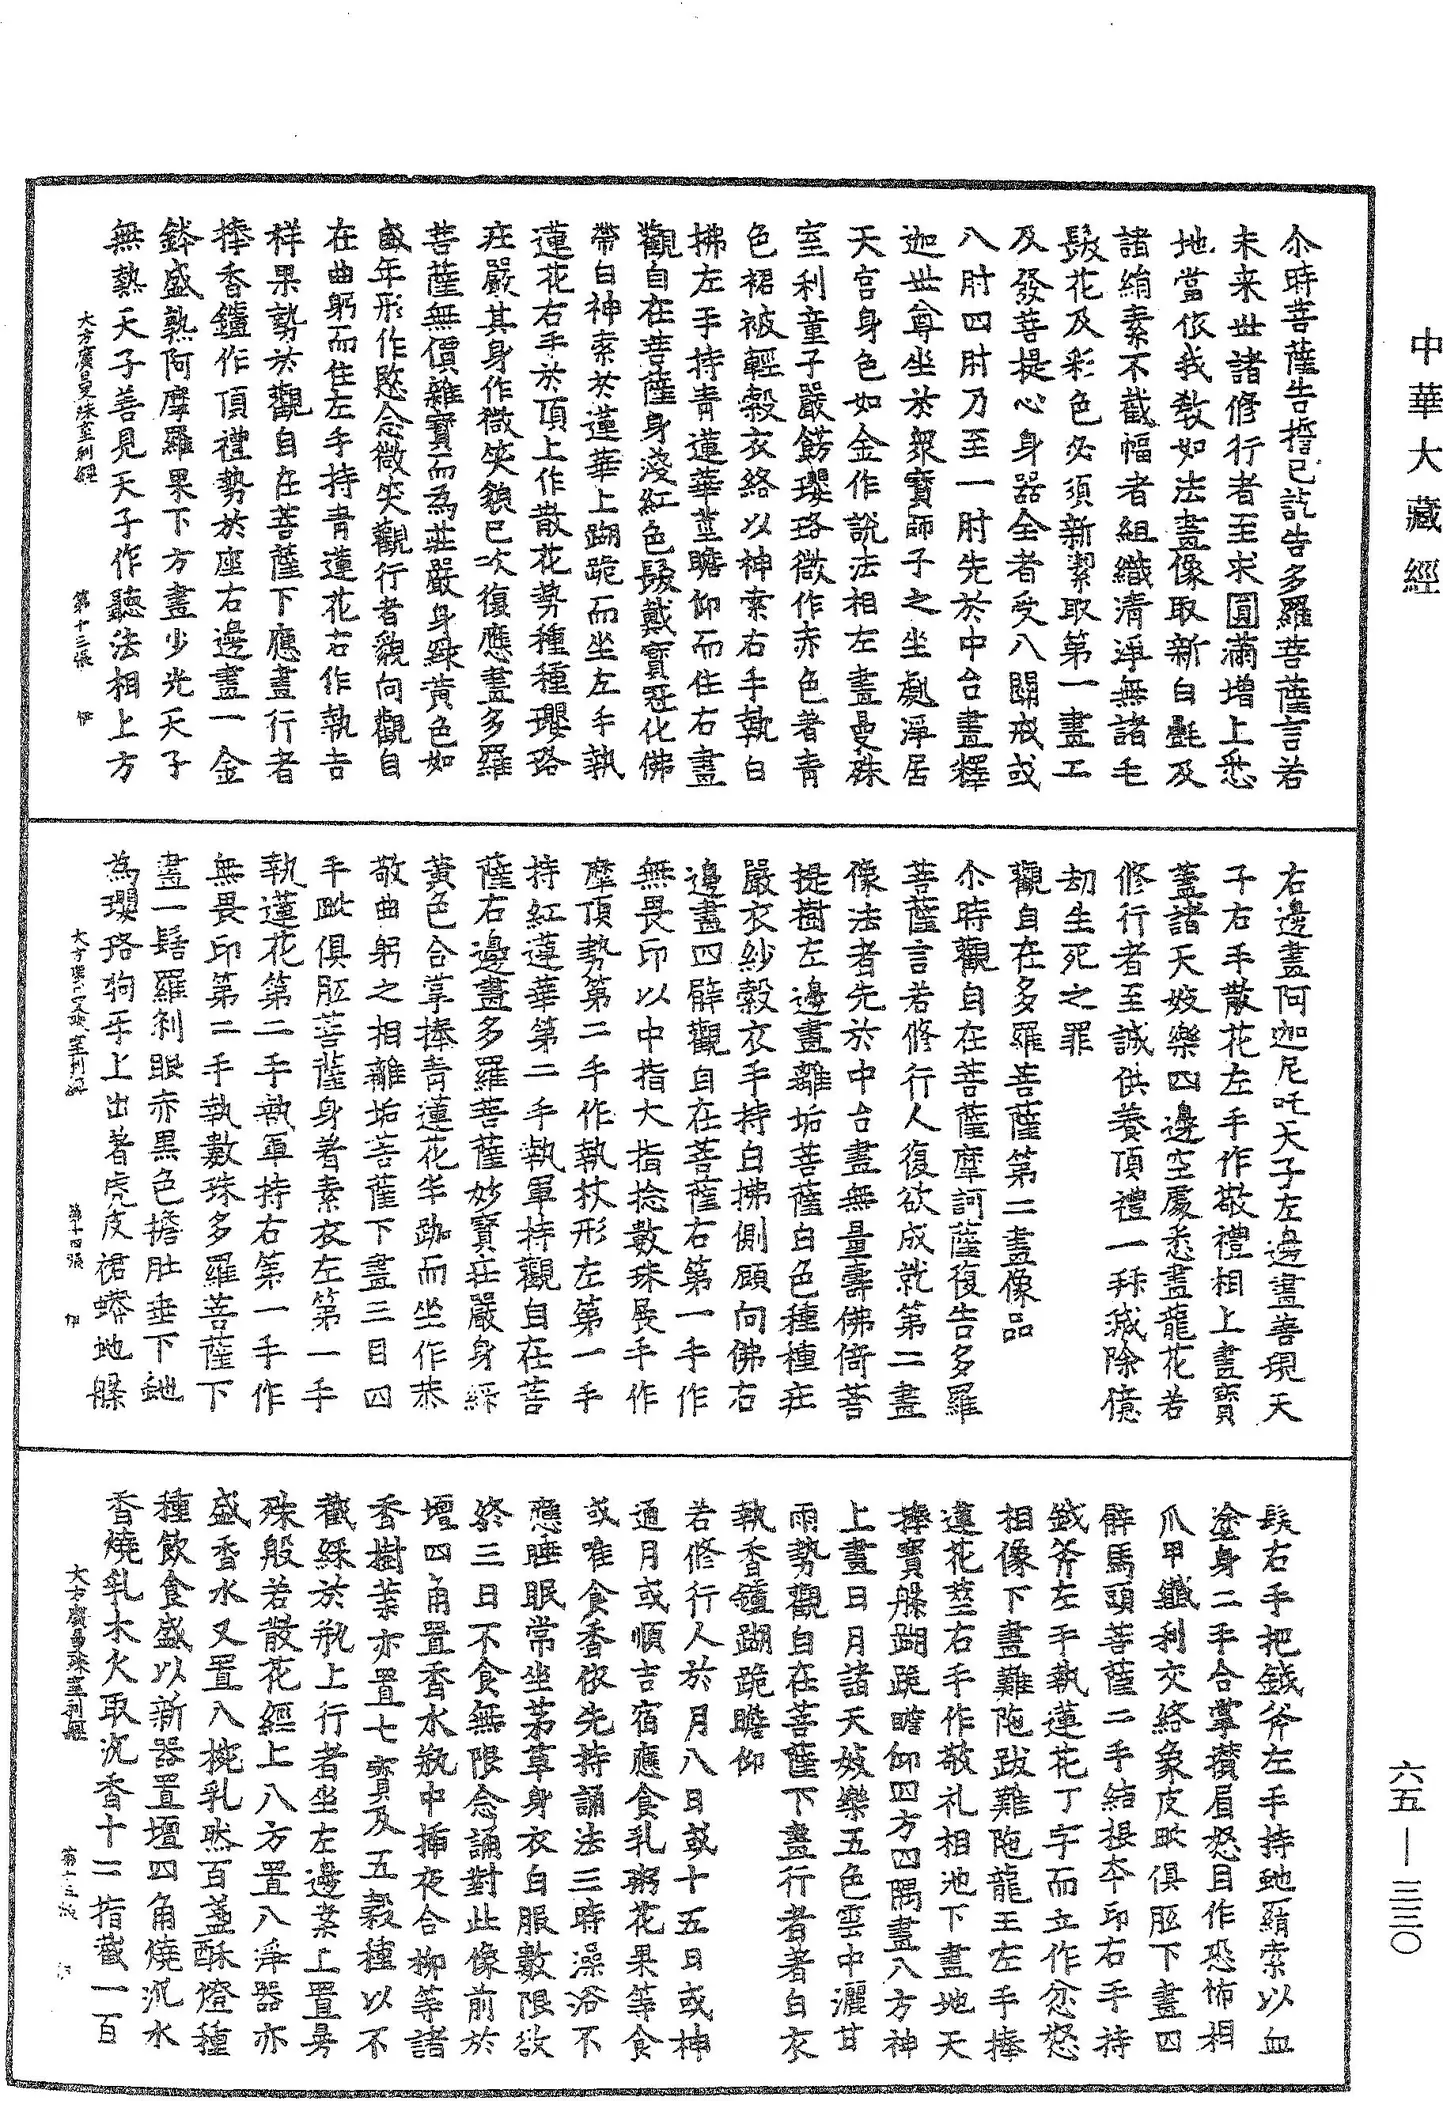 中華大藏經
尒時菩薩告擔已訖告多羅菩薩言若
未来世諸修行者至求圓滿增上悉
地當依我教如法畫像取新白㲲及
諸絹素不截幅者組織清淨無諸毛
髮花及彩色必須新潔取第一畫工
及發菩提心身器全者受八關戒或
八肘四肘乃至一肘先於中台畫釋
迦世尊坐於衆寶師子之坐處淨居
天宮身色如金作說法相左畫曼殊
室利童子嚴餝瓔珞微作赤色著青
色裙被輕縠衣絡以神索右手執白
拂左手持青蓮華莖瞻仰而住右畫
觀自在菩薩身淺紅色髮戴寶冠化佛
帶白神索於蓮華上䠒跪而坐左手執
蓮花右手於頂上作散花勢種種瓔珞
莊嚴其身作微笑貌已次復應畫多羅
菩薩無價雜寶而為莊嚴身綠黃色如
盛年形作愍念微笑觀行者貌向觀自
在曲躬而住左手持青蓮花右作執吉
样果勢於觀自在菩薩下應畫行者
捧香鑪作頂禮勢於座右邊畫一金
鉢盛熟阿摩羅果下方畫少光天子
無熱天子善見天子作聽法相上方
大方廣曼殊室利經 第十三張 伊
右邊畫阿迦尼吒天子左邊畫善現天
子右手散花左手作敬禮相上畫寶
蓋諸天妓樂四邊空處悉畫龍花若
修行者至誠供養頂禮一拜滅除億
劫生死之罪
觀自在多羅菩薩第二畫像品
尒時觀自在菩薩摩訶薩復告多羅
菩薩言若修行人復欲成就第二畫
像法者先於中台畫無量壽佛倚菩
提樹左邊畫離垢菩薩白色種種莊
嚴衣紗縠衣手持白拂側顧向佛右
邊畫四臂觀自在菩薩右第一手作
無畏印以中指大指捻數珠展手作
摩頂勢第二手作執杖形左第一手
持紅蓮華第二手執軍持觀自在菩
薩右邊畫多羅菩薩妙寶莊嚴身綠
黃色合掌捧青蓮花半跏而坐作恭
敬曲躬之相離垢菩薩下畫三目四
手毗俱胝菩薩身著素衣左第一手
執蓮花第二手執軍持右第一手作
無畏印第二手執數珠多羅菩薩下
畫一髻羅剎眼赤黑色擔肚垂下虵
為瓔珞狗牙上出著虎皮裙蟒虵躶
大方廣曼殊室利經 第十四張 伊
髮右手把鉞斧左手持虵羂索以血
塗身二手合掌攢眉怒目作恐怖相
爪甲纖利交絡象皮毗俱胝下畫四
臂馬頭菩薩二手結根本印右手持
鉞斧左手執蓮花丁字而立作忿怒
相像下畫難陁跋難陁龍王左手捧
蓮花莖右手作敬礼相池下畫地天
捧寶躶䠒跪瞻仰四方四隅畫八方神
上畫日月諸天妓樂五色雲中灑甘
雨勢觀自在菩薩下畫行者著白衣
執香鑪䠒跪瞻仰
若修行人於月八日或十五日或神
通月或順吉宿應食乳粥花果等食
或唯食香依先持誦法三時澡浴不
應睡眠常坐茅草身衣白服數限欲
終三日不食無限念誦對此像前於
壇四角置香水瓶中插夜合柳等諸
香樹葉亦置七寶及五穀種以不
截綵於瓶上行者坐左邊葉上置曼
殊般若散花經上八方置八淨器亦
盛香水又置八椀乳然百盞酥燈種
種飲食盛以新器置壇四角燒沉水
香燒乳木火取沉香十二指截一百
大方廣曼殊室利經 第十五張
六五—三三〇